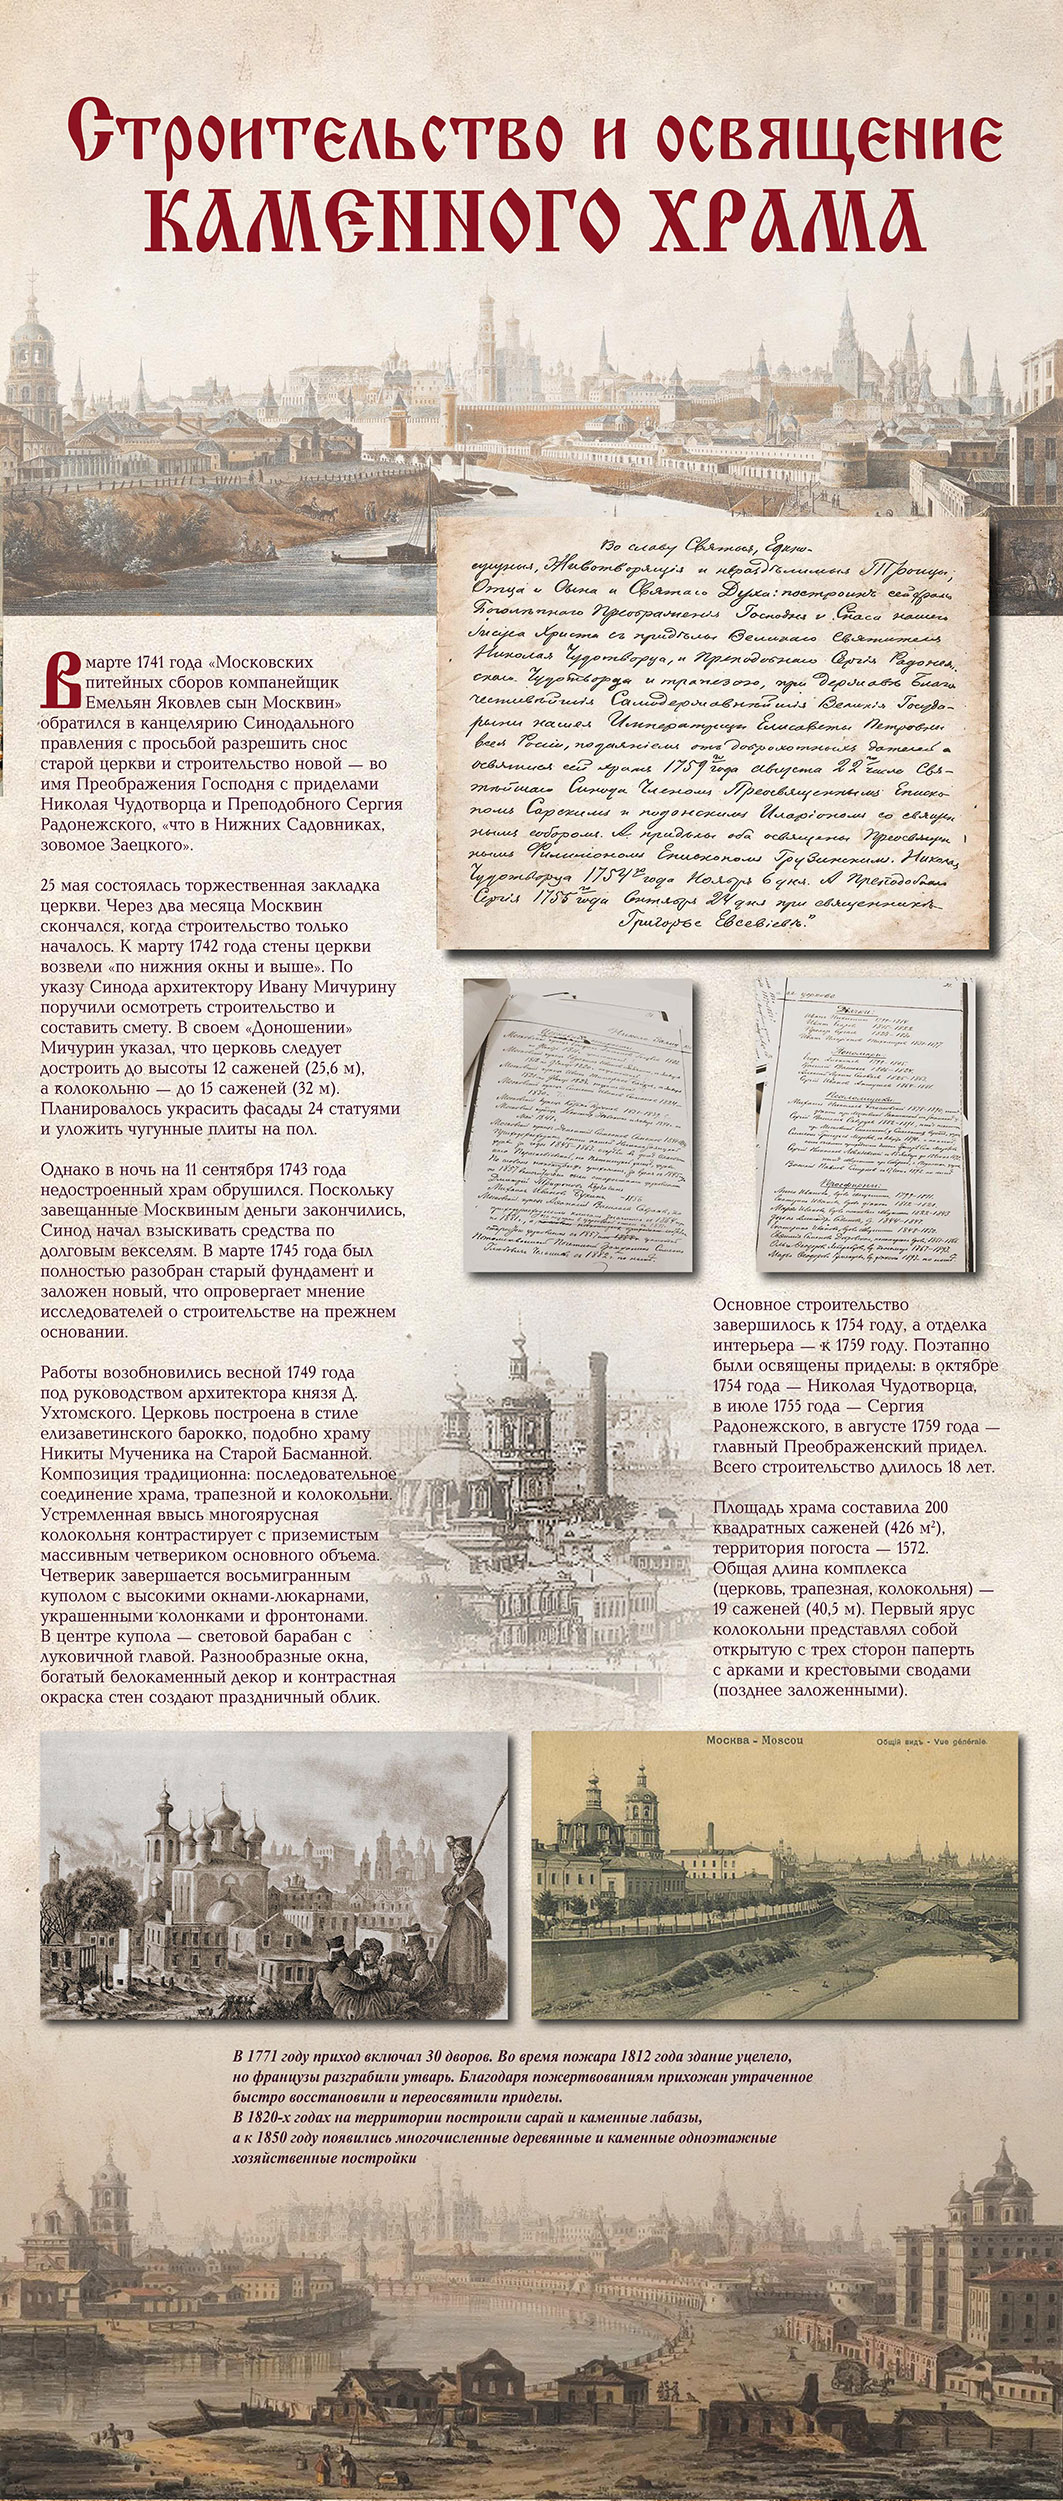 Строительство и освящение
каменного храма
Во славу Святыя, Едино-
сущныя, Животворящiя и нераздѣлимыя Троицы,
Отца и Сына и Святаго Духа: построимъ сей храмъ
Боголѣпнаго Преображенiя Господня и Спаса нашего
Iисуса Христа съ придѣлы Великаго Святителя
Николая Чудотворца, и Преподобнаго Сергiя Радонеж-
скаго Чудотворца и трапезою, при державѣ Благо-
честивѣйшiя Самодержавнѣйшiя Великiя Госуда-
рыни нашея Императрицы Елисаветы Петровны
всея Россiи, подаянiемъ отъ доброхотныхъ дателей а
освятися сей храмъ 1759го года августа 22го числа Свя-
тѣйшаго Синода Членомъ Преосвященнымъ Еписко-
помъ Сарскимъ и подонскимъ Иларiономъ со священ-
нымъ соборомъ. А придѣлы оба освящены Преосвящен-
нымъ Епископомъ Грузинскимъ. Николая
Чудотворца 1754го года Ноября 6 дня. А Преподобнаго
Сергiя 1755го года Сентября 24 дня при священникѣ
Григорье Евсевiевѣ."
В марте 1741 года «Московских
питейных сборов компанейщик
Емельян Яковлев сын Москвин»
обратился в канцелярию Синодального
правления с просьбой разрешить снос
старой церкви и строительство новой — во
имя Преображения Господня с приделами
Николая Чудотворца и Преподобного Сергия
Радонежского, «что в Нижних Садовниках,
зовомое Заецкого».
25 мая состоялась торжественная закладка
церкви. Через два месяца Москвин
скончался, когда строительство только
началось. К марту 1742 года стены церкви
возвели «по нижния окны и выше». По
указу Синода архитектору Ивану Мичурину
поручили осмотреть строительство и
составить смету. В своем «Доношении»
Мичурин указал, что церковь следует
достроить до высоты 12 саженей (25,6 м),
а колокольню — до 15 саженей (32 м).
Планировалось украсить фасады 24 статуями
и уложить чугунные плиты на пол.
Однако в ночь на 11 сентября 1743 года
недостроенный храм обрушился. Поскольку
завещанные Москвиным деньги закончились,
Синод начал взыскивать средства по
долговым векселям. В марте 1745 года был
полностью разобран старый фундамент и
заложен новый, что опровергает мнение
исследователей о строительстве на прежнем
основании.
Работы возобновились весной 1749 года
под руководством архитектора князя Д.
Ухтомского. Церковь построена в стиле
елизаветинского барокко, подобно храму
Никиты Мученика на Старой Басманной.
Композиция традиционна: последовательное
соединение храма, трапезной и колокольни.
Устремленная ввысь многоярусная
колокольня контрастирует с приземистым
массивным четвериком основного объема.
Четверик завершается восьмигранным
куполом с высокими окнами-люкарнами,
украшенными колонками и фронтонами.
В центре купола — световой барабан с
луковичной главой. Разнообразные окна,
богатый белокаменный декор и контрастная
окраска стен создают праздничный облик.
Основное строительство
завершилось к 1754 году, а отделка
интерьера — к 1759 году. Поэтапно
были освящены приделы: в октябре
1754 года — Николая Чудотворца,
в июле 1755 года — Сергия
Радонежского, в августе 1759 года —
главный Преображенский придел.
Всего строительство длилось 18 лет.
Площадь храма составила 200
квадратных саженей (426 м²),
территория погоста — 1572.
Общая длина комплекса
(церковь, трапезная, колокольня) —
19 саженей (40,5 м). Первый ярус
колокольни представлял собой
открытую с трех сторон паперть
с арками и крестовыми сводами
(позднее заложенными).
Москва - Moscou
Общiй видъ - Vue générale.
В 1771 году приход включал 30 дворов. Во время пожара 1812 года здание уцелело,
но французы разграбили утварь. Благодаря пожертвованиям прихожан утраченное
быстро восстановили и переосвятили приделы.
В 1820-х годах на территории построили сарай и каменные лабазы,
а к 1850 году появились многочисленные деревянные и каменные одноэтажные
хозяйственные постройки